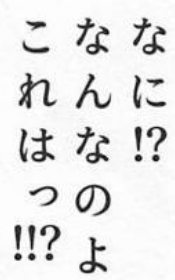 なに!?
なんなのよ
これはっ!!?